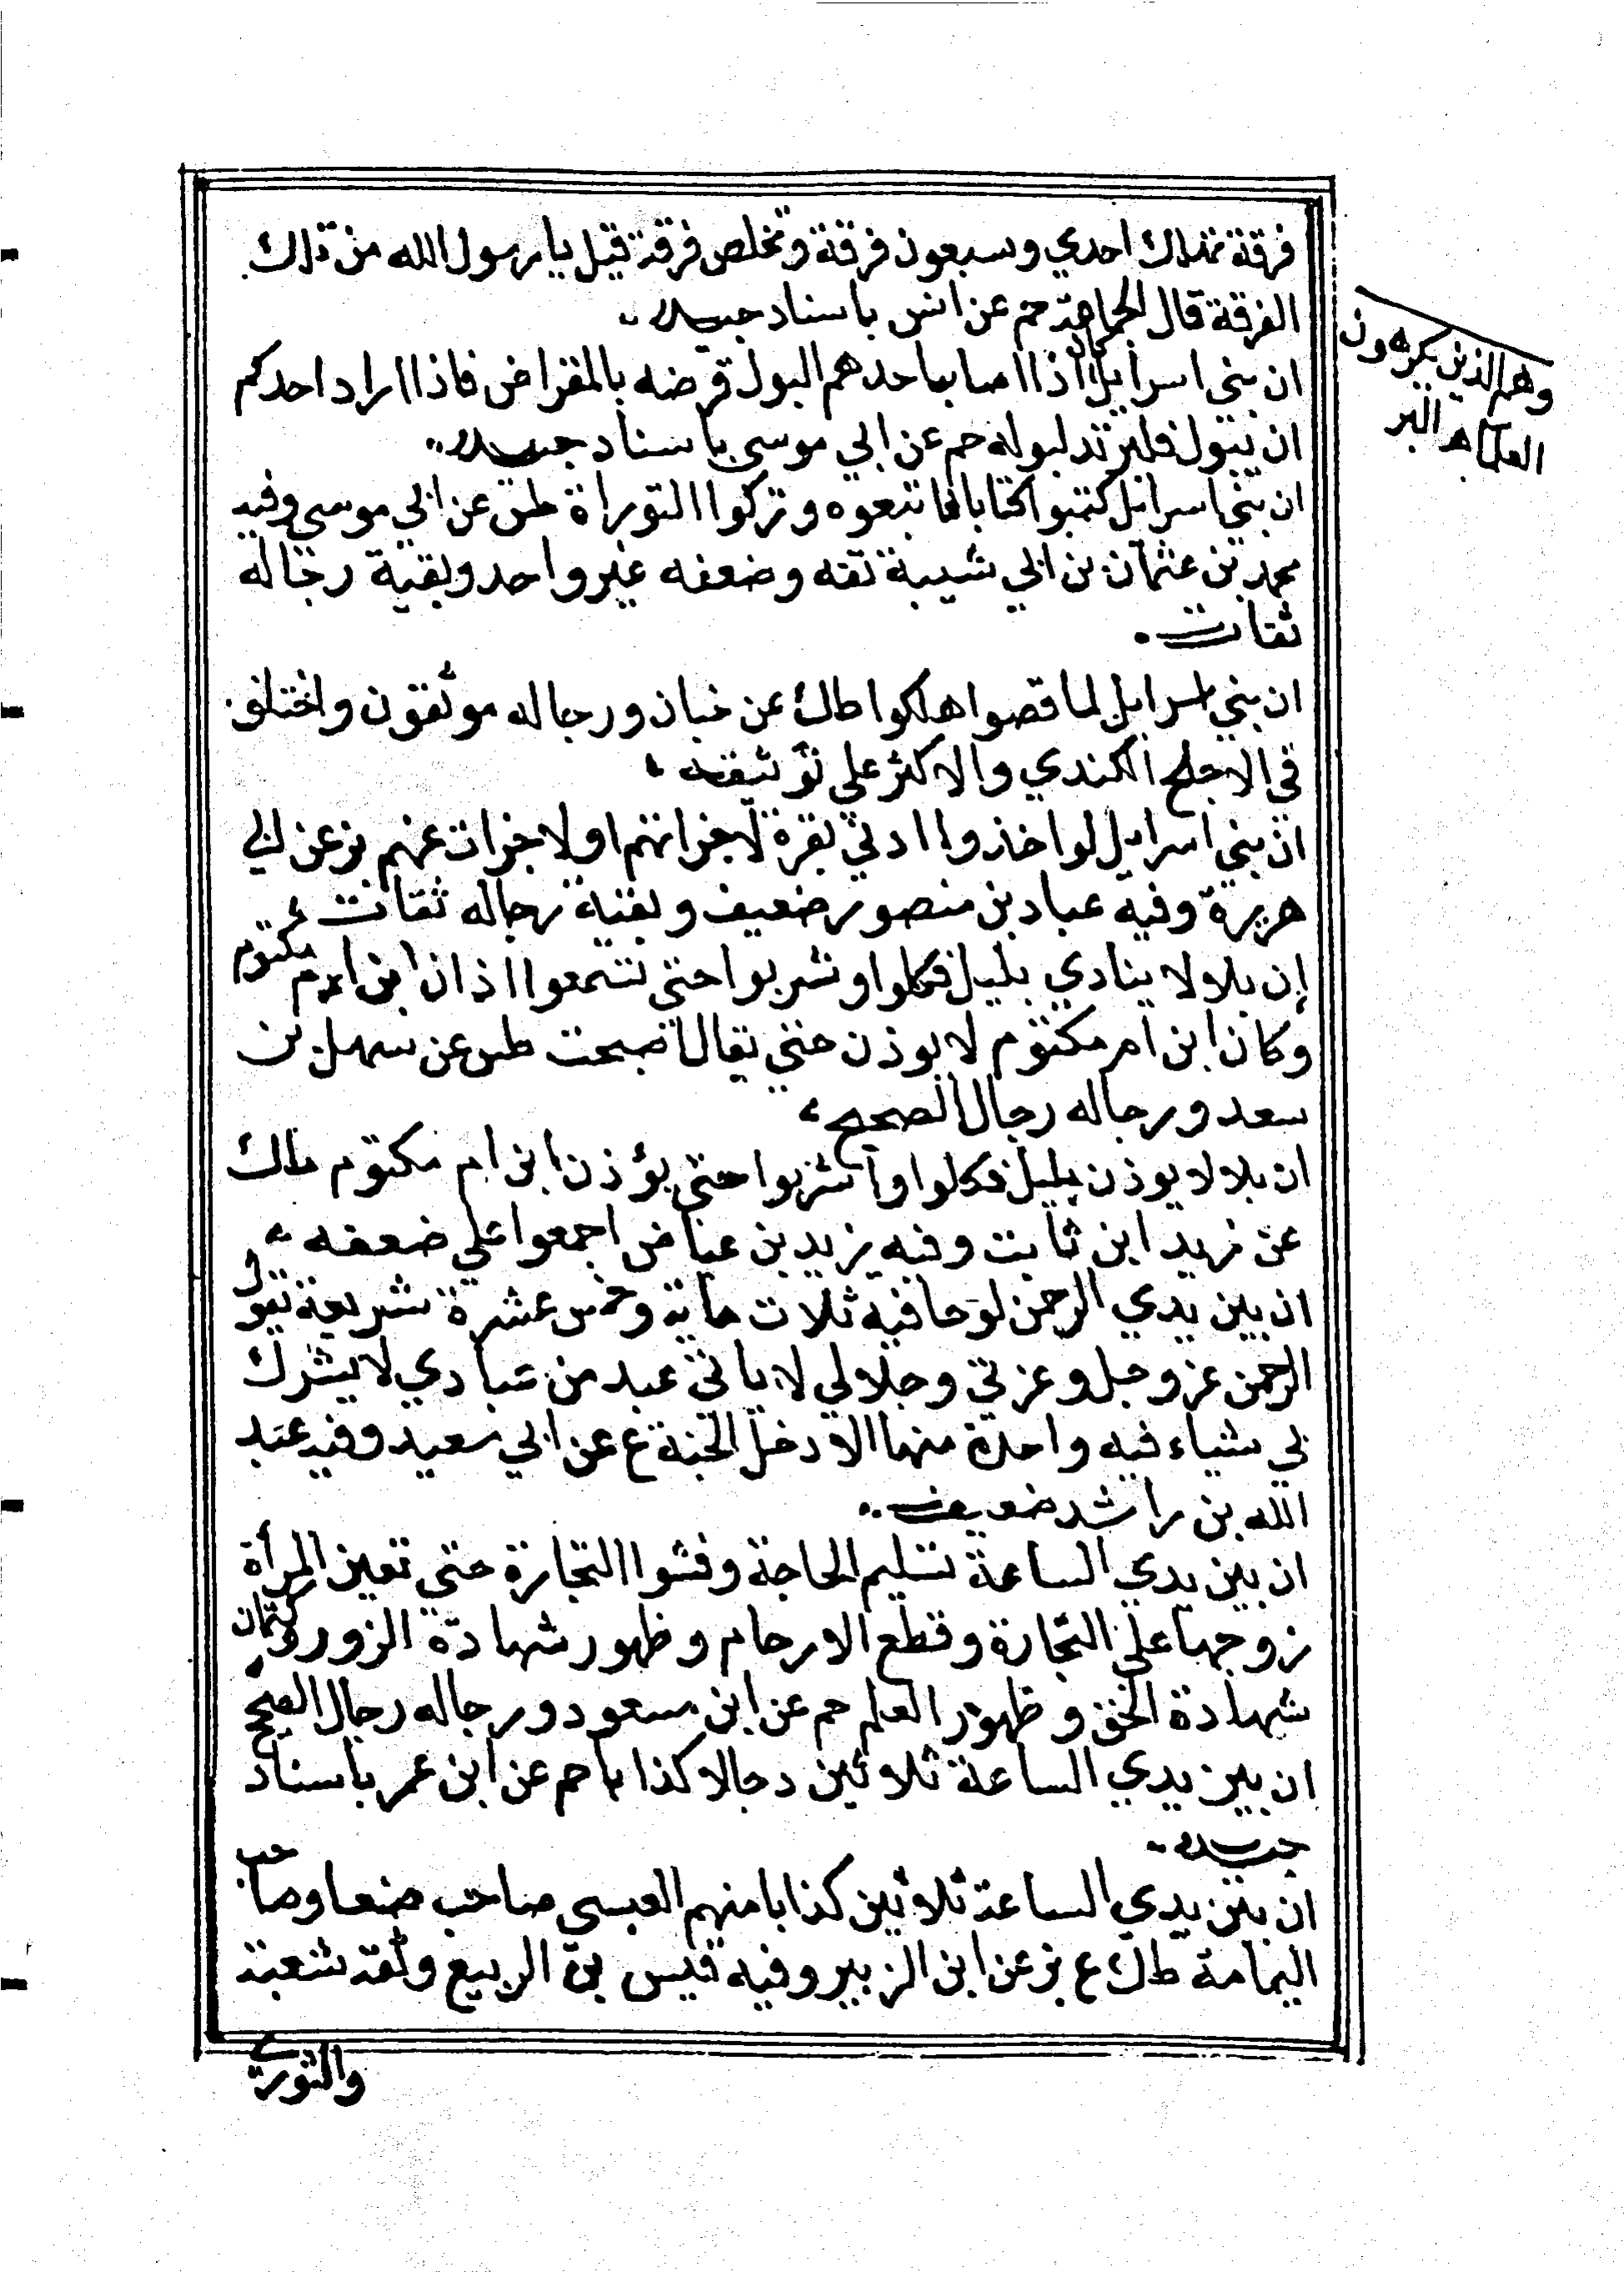 فرقة تهلك احدي وسبعون فرقة وتخلص فرقة قيل يا رسول الله من تلك
الفرقة قال الجماعة حم عن انس باسناد جيد
ان بني اسرايل كان اذا اصاب احدهم البول قرضه بالمقراض فاذا اراد احدكم
ان يبول فليرتد لبوله حم عن ابي موسي باسناد جيد
ان بني اسرايل كتبوا كتابا فاتبعوه وتركوا التوراة طس عن ابي موسي وفيه
محمد بن عثمان بن ابي شيبة ثقه وضعفه غير واحد وبقية رجاله
ثقات
ان بني اسرايل لما قصوا هلكوا طك عن خباب ورجاله موثقون واختلف
في الاجلح الكندي والاكثر علي توثيقه
ان بني اسرايل لو اخذوا ادني بقرة لاجزاتهم او لاجزات عنهم بز عن ابي
هريرة وفيه عباد بن منصور ضعيف وبقية رجاله ثقات
إن بلالا ينادي بليل فكلوا وشربوا حتي تسمعوا اذان ابن ام مكتوم
وكان ابن ام مكتوم لا يوذن حتي يقال اصبحت طس عن سهل بن
سعد ورجاله رجال الصحيح
ان بلالا يوذن بليل فكلوا واشربوا حتي يؤذن ابن ام مكتوم طك
عن زيد ابن ثابت وفيه يزيد بن عياض اجمعوا علي ضعفه
ان بين يدي الرحمن لوحا فيه ثلاث ماية وخمس عشرة شريعة يقول
الرحمن عز وجل وعزتي وجلالي لا ياتي عبد من عبادي لا يشرك
بي شياء فيه واحدة منها الا دخل الجنة ع عن ابي سعيد وفيه عبد
الله بن راشد ضعيف
ان بين يدي الساعة تسليم الخاجة وفشوا التجارة حتي تعين المرأة
زوجها علي التجارة وقطع الارحام وظهور شهادة الزور وكتمان
شهادة الحق وظهور العلم حم عن ابن مسعود ورجاله رجال الصحيح
ان بين يدي الساعة ثلاثين دجالا كذابا حم عن ابن عمر باسناد
جيد
ان بين يدي الساعة ثلاثين كذابا منهم العبسي صاحب صنعا وصاحب
اليمامة طك ع بز عن ابن الزبير وفيه قيس بن الربيع وثقه شعبة
والثوري
وهم الذين يكرهون